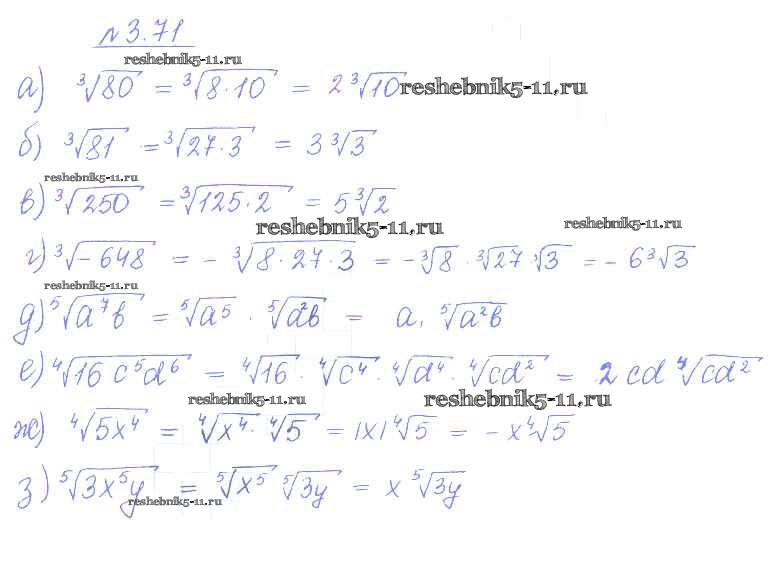 №3.71
reshebnik5-11.ru
а) ∛80 = ∛(8·10) = 2∛10 reshebnik5-11.ru
б) ∛81 = ∛(27·3) = 3∛3
reshebnik5-11.ru
в) ∛250 = ∛(125·2) = 5∛2
reshebnik5-11.ru reshebnik5-11.ru
г) ∛(-648) = -∛(8·27·3) = -∛8 · ∛27 · ∛3 = -6∛3
reshebnik5-11.ru
д) ⁵√(a⁷b) = ⁵√(a⁵) · ⁵√(a²b) = a · ⁵√(a²b)
е) ⁴√(16c⁵d⁶) = ⁴√16 · ⁴√(c⁴) · ⁴√(d⁴) · ⁴√(cd²) = 2cd ⁴√(cd²)
reshebnik5-11.ru reshebnik5-11.ru
ж) ⁴√(5x⁴) = ⁴√(x⁴) · ⁴√5 = |x| ⁴√5 = -x ⁴√5
з) ⁵√(3x⁵y) = ⁵√(x⁵) ⁵√(3y) = x ⁵√(3y)
reshebnik5-11.ru